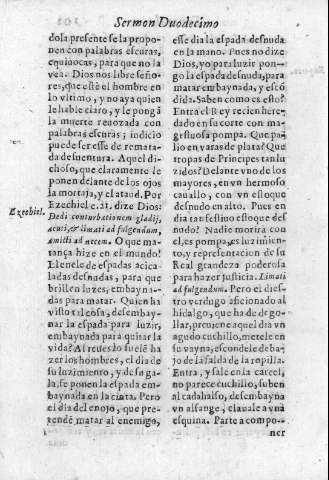 Sermon Duodecimo
do la presente se la propo-
nen con palabras escuras,
equiuocas, para que no la
vea. Dios nos libre seño-
res, que estè el hombre en
lo vltimo, y no aya quien
le hable claro, y le pongã
la muerte reuozada con
palabras escuras; indicio
puede ser esse de remata-
da desuentura. Aquel di-
choso, que claramente le
ponen delante de los ojos
la mortaja, y el ataud. Por
Ezechiel c. 21. dize Dios:
Ezechiel.
Dedi conturbationem gladij,
acuti, & limati ad fulgendum,
amicti ad necem. O que ma-
tança hize en el mundo!
Llenele de espadas acica-
ladas desnudas, para que
brillen luzes, embayna-
das para matar. Quien ha
visto tal cosa, desembay-
nar la espada para luzir,
embaynada para quitar la
vida? Al reues lo suelẽ ha-
zer los hombres, el dia de
su luzimiento, y de su ga-
la, se ponen la espada em-
baynada en la cinta. Pero
el dia del enojo, que pre-
tendẽ matar al enemigo,
esse dia la espada desnuda
en la mano. Pues no dize
Dios, yo para luzir pon-
go la espada desnuda, para
matar embaynada, y escõ
dida. Saben como es esto?
Entra el Rey recien here-
dado en su corte con ma-
gestuosa pompa. Que pa-
lio en varas de plata? Que
tropas de Principes tan lu-
zidos? Delante vno de los
mayores, en vn hermoso
cauallo, con vn estoque
desnudo en alto. Pues en
dia tan festiuo estoque des-
nudo? Nadie morira con
el, es pompa, es luzimien-
to, y representacion de su
Real grandeza poderosa
para hazer justicia. Limati
ad fulgendum. Pero el dies-
tro verdugo aficionado al
hidalgo, que ha de dego-
llar, preuiene aquel dia vn
agudo cuchillo, metele en
su vayna, escondele deba-
jo de la falda de la ropilla.
Entra, y sale en la carcel,
no parece cuchillo, suben
al cadahalso, desembayna
vn alfange, clauale a vna
esquina. Parte a compo-
ner